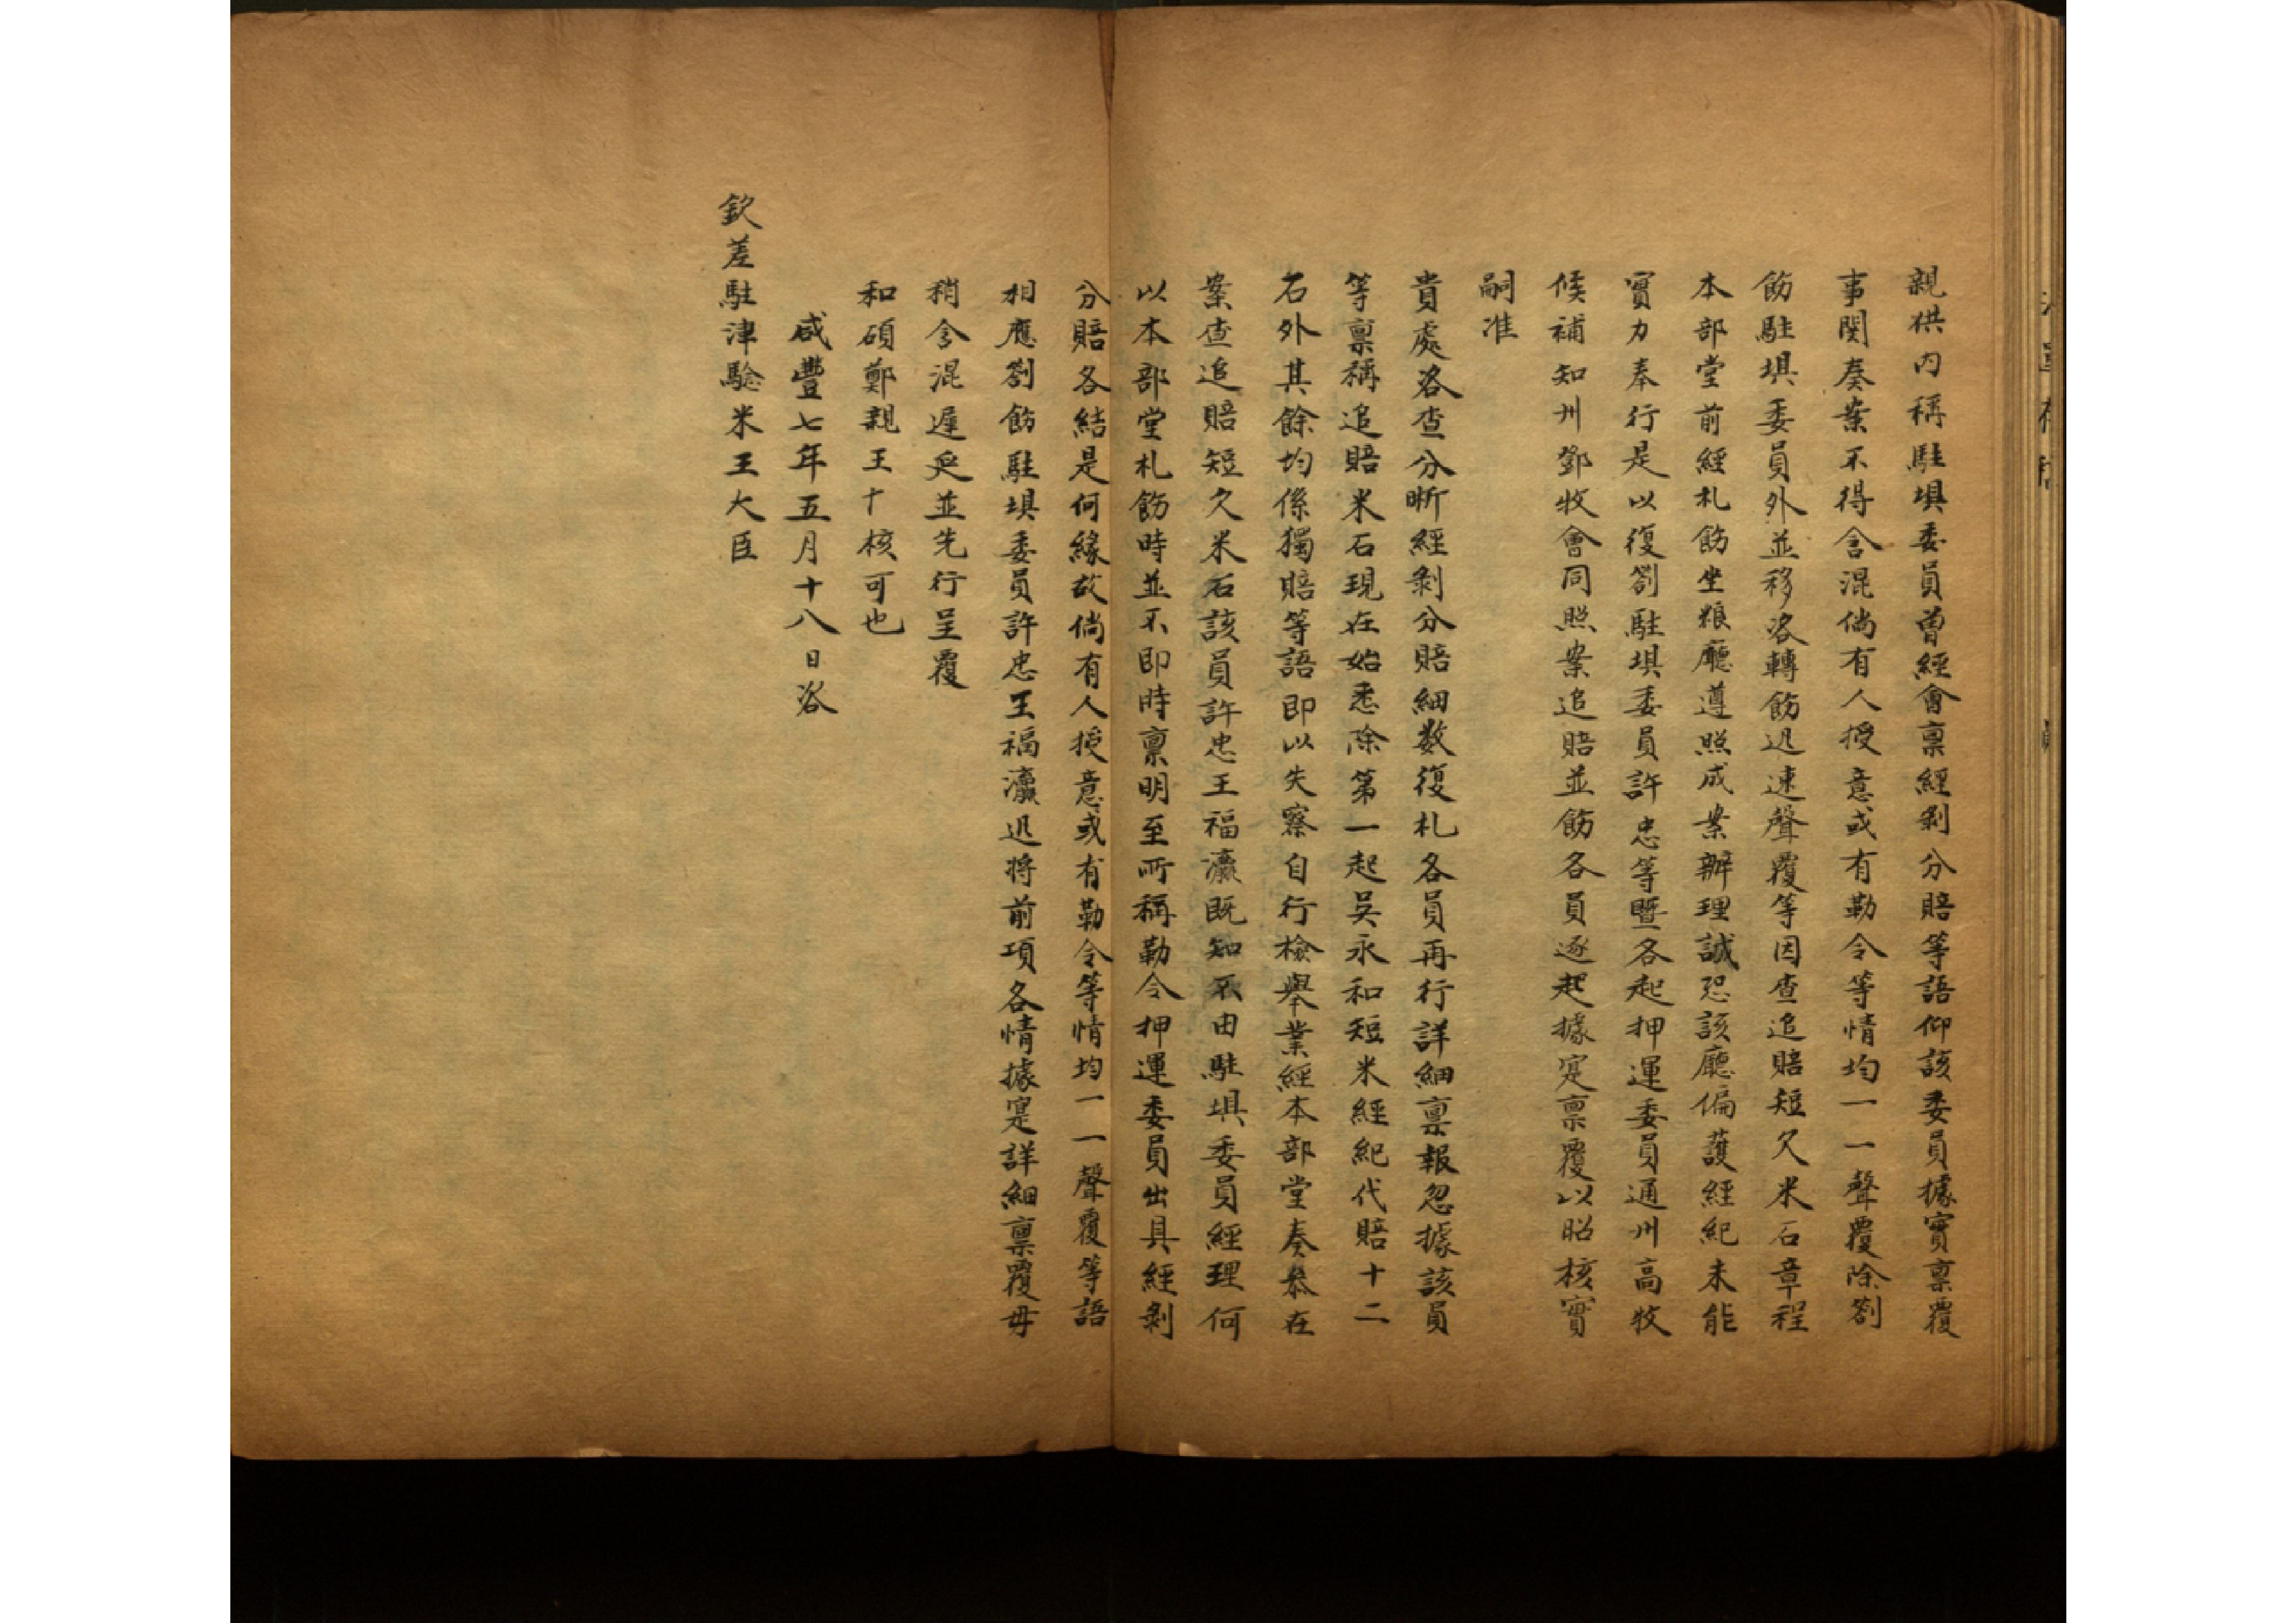 親供内稱駐垻委員曾經會禀經剝分賠等語仰該委員據實禀覆
事関奏案不得含混倘有人授意或有勒令等情均一一聲覆除劄
飭駐垻委員外並移咨轉飭迅速聲覆等因查追賠短欠米石章程
本部堂前經札飭坐粮廳遵照成案辦理誠恐該廳偏護經紀未能
實力奉行是以復劄駐垻委員許忠等暨各起押運委員通州高牧
候補知州鄧牧會同照案追賠並飭各員逐起據寔禀覆以昭核實
嗣准
貴處咨查分晰經剝分賠細数復札各員再行詳細禀報忽據該員
等禀稱追賠米石現在始悉除第一起吳永和短米經紀代賠十二
石外其餘均係獨賠等語即以失察自行檢舉業經本部堂奏叅在
案查追賠短欠米石該員許忠王福瀛既知不由駐垻委員經理何
以本部堂札飭時並不即時禀明至所稱勒令押運委員出具經剝
分賠各結是何緣故倘有人授意或有勒令等情均一一聲覆等語
相應劄飭駐垻委員許忠王福瀛迅將前項各情據寔詳細禀覆毋
稍含混遲延並先行呈覆
和碩鄭親王十核可也
咸豐七年五月十八日咨
欽差駐津驗米王大臣